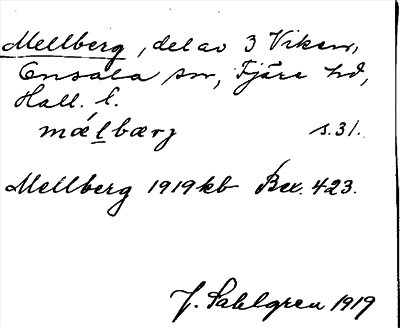 Mellberg, del av 3 Viken,
Onsala sn, Fjäre hd,
Hall. l.
mǽl̲bærj s. 31.
Mellberg 1919 kb Bex. 423.
J. Sahlgren 1919